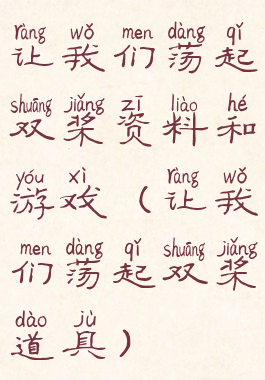 ràng wǒ men dàng qǐ
让我们荡起
shuāng jiǎng zī liào hé
双桨资料和
yóu xì ràng wǒ
游戏（让我
men dàng qǐ shuāng jiǎng
们荡起双桨
dào jù
道具）